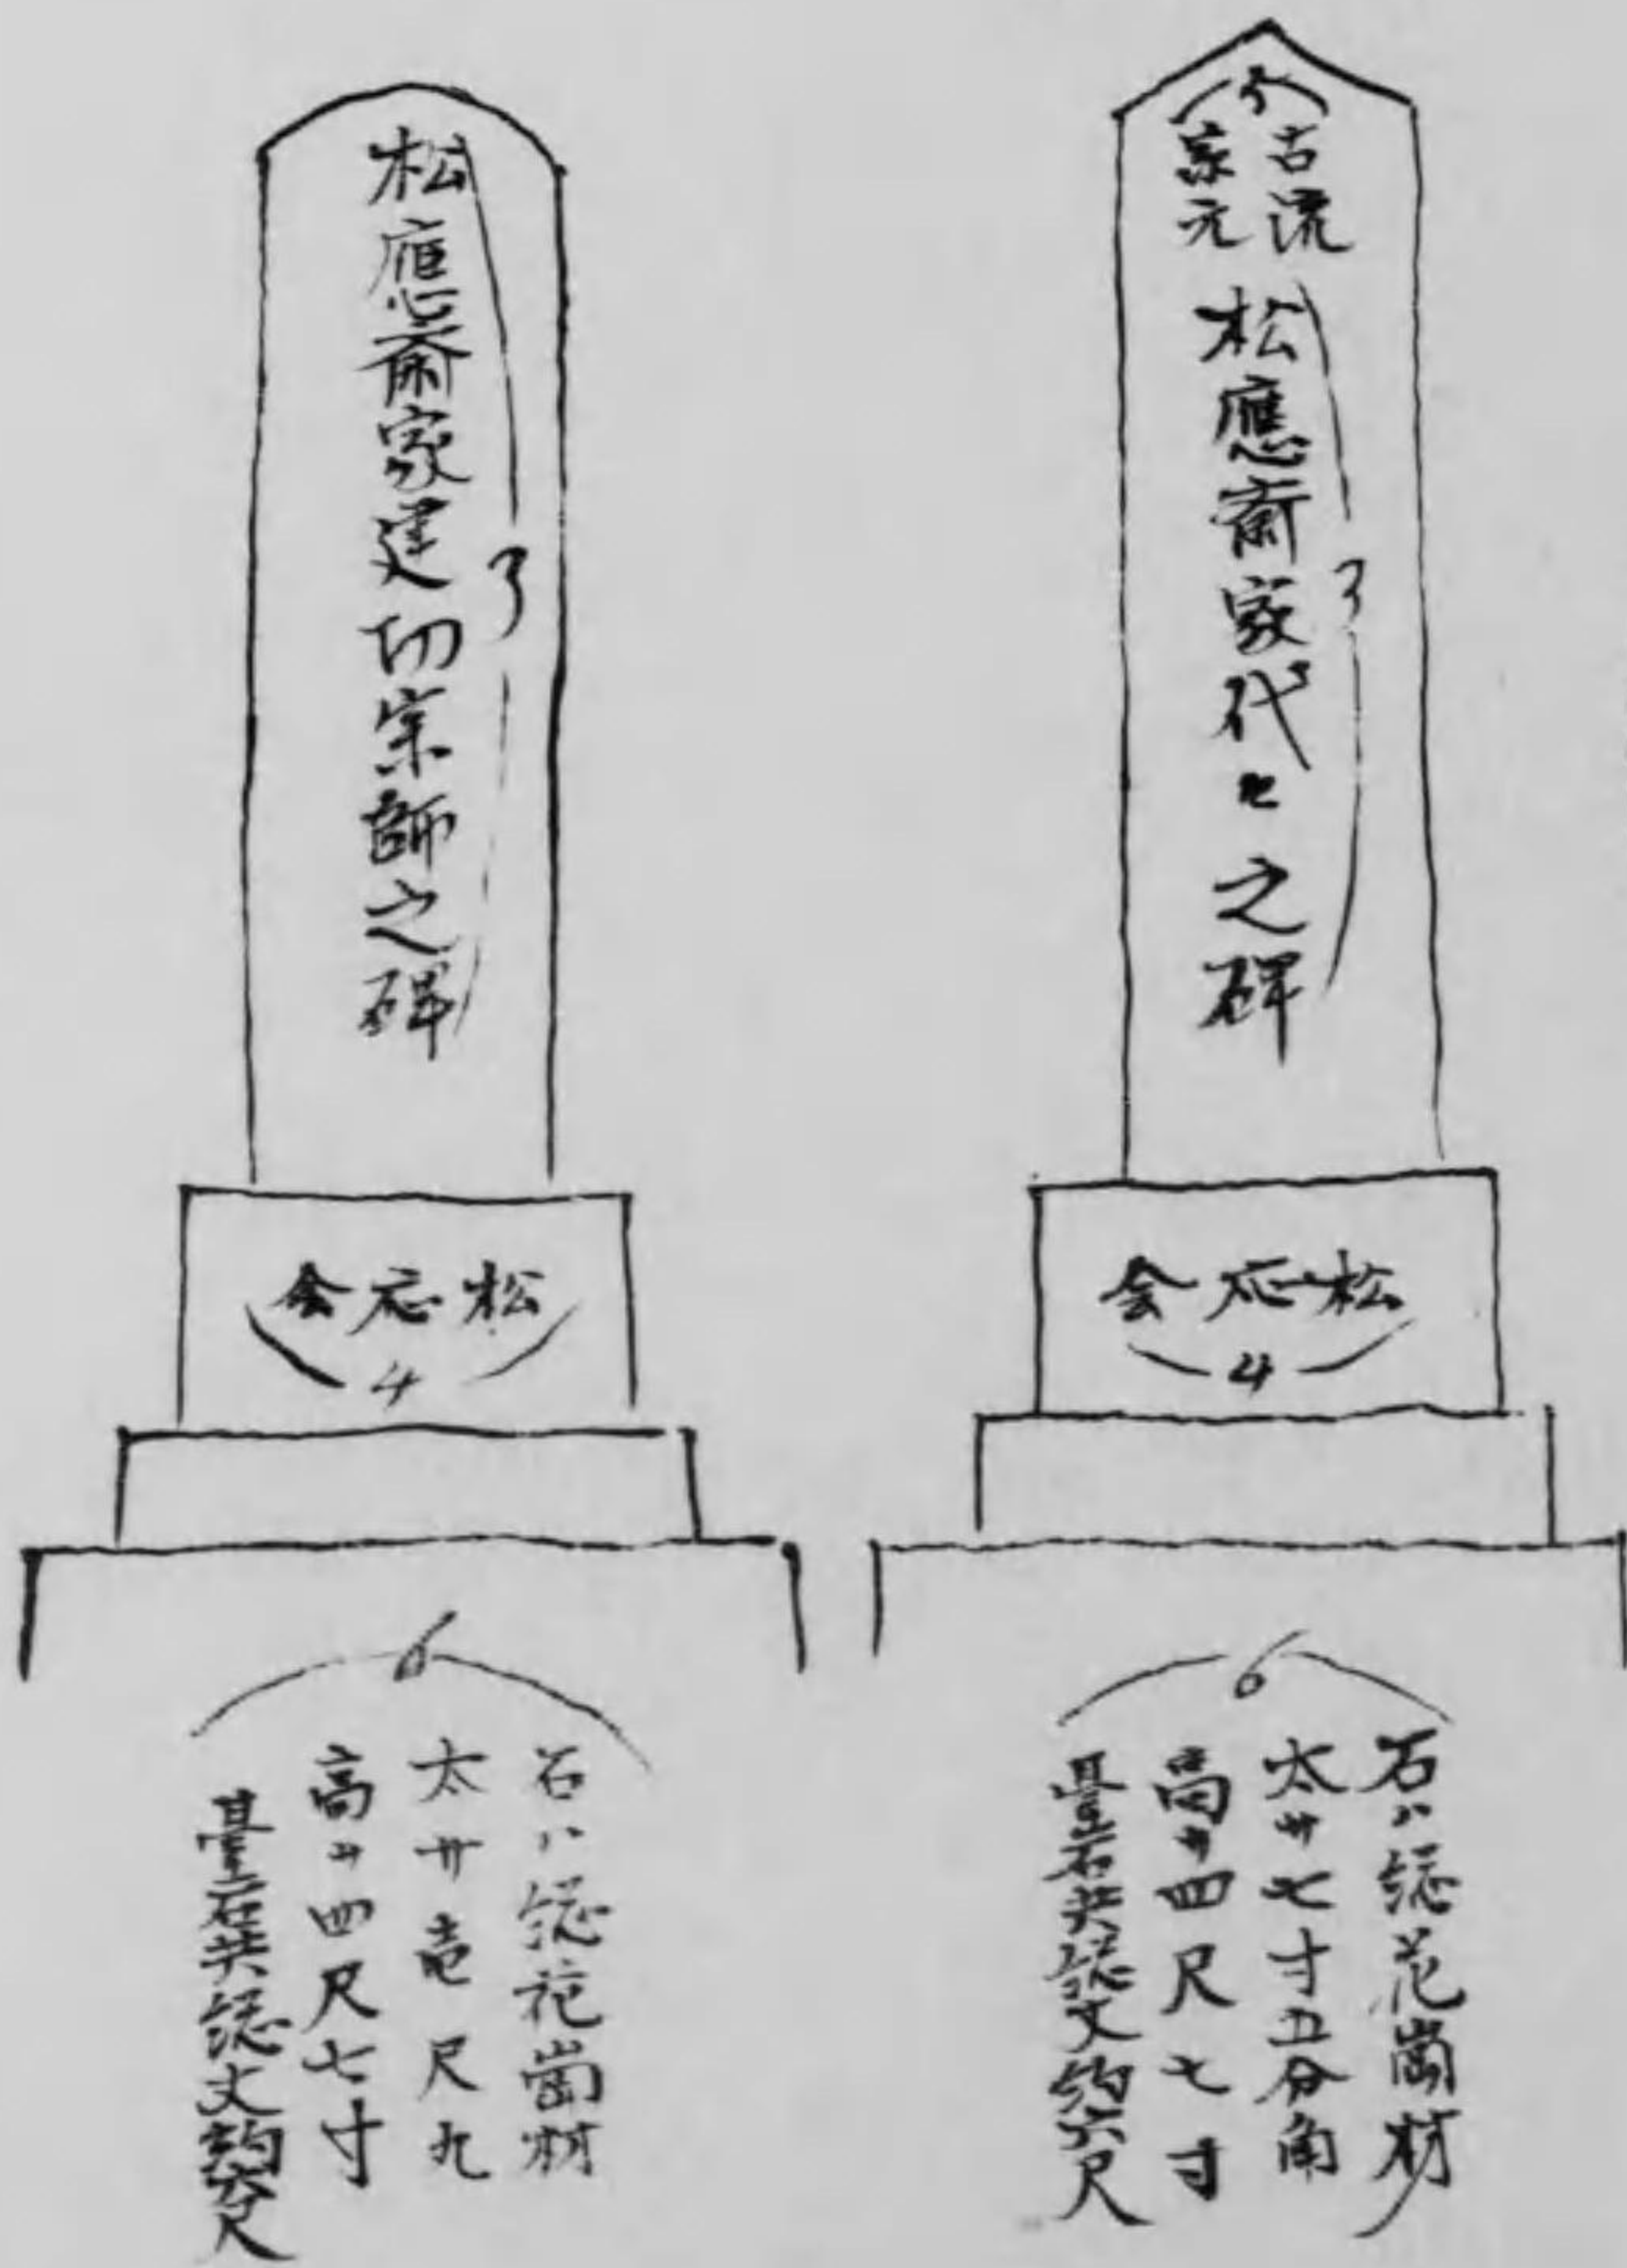 3
古流
家元
松應斎家代々之碑
3
松応会
4
6
石ハ総花崗材
太サ七寸五分角
高サ四尺七寸
臺石共総丈約六尺
松應斎家建功宗師之碑
3
松応会
4
6
石ハ総花崗材
太サ壱尺丸
高サ四尺七寸
臺石共総丈約六尺